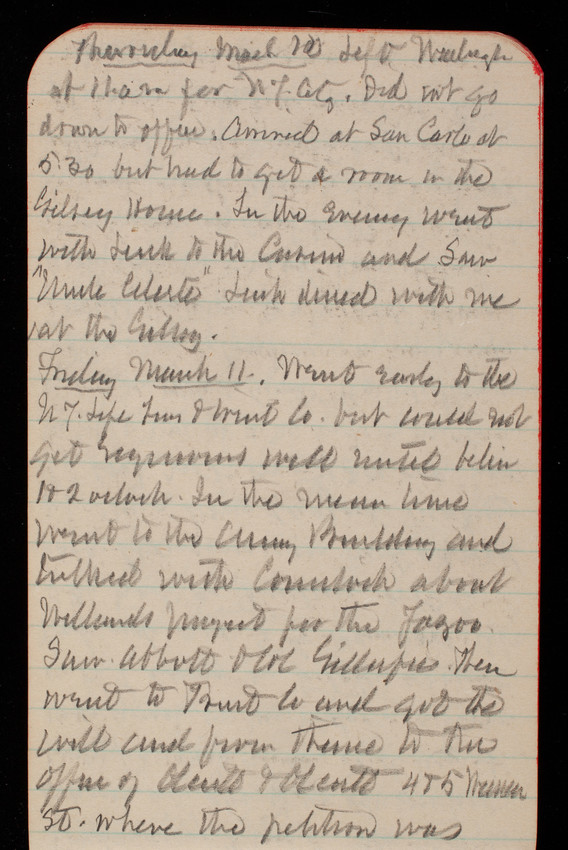 Thursday March 10 Left Washington
at 11 a m for N.Y. City. Did not go
down to office. Arrived at San Carlo at
5:30 but had to get a room in the
Gilsey House. In the evening went
with to the Casino and Saw
"Uncle Celeste" dined with me
at the Gilsey.
Friday March 11. Went early to the
N.Y. Life Ins & Trust Co. but could not
get will until
1 or 2 oclock. In the mean time
went to the Army Building and
talked with Comstock about
Willards project for the Yazoo.
Saw Abbott & Col Gillespie. Then
went to Trust Co and got the
will and from thence to the
office of Olcott & Olcott 4 & 5 Warren
St. where the petition was